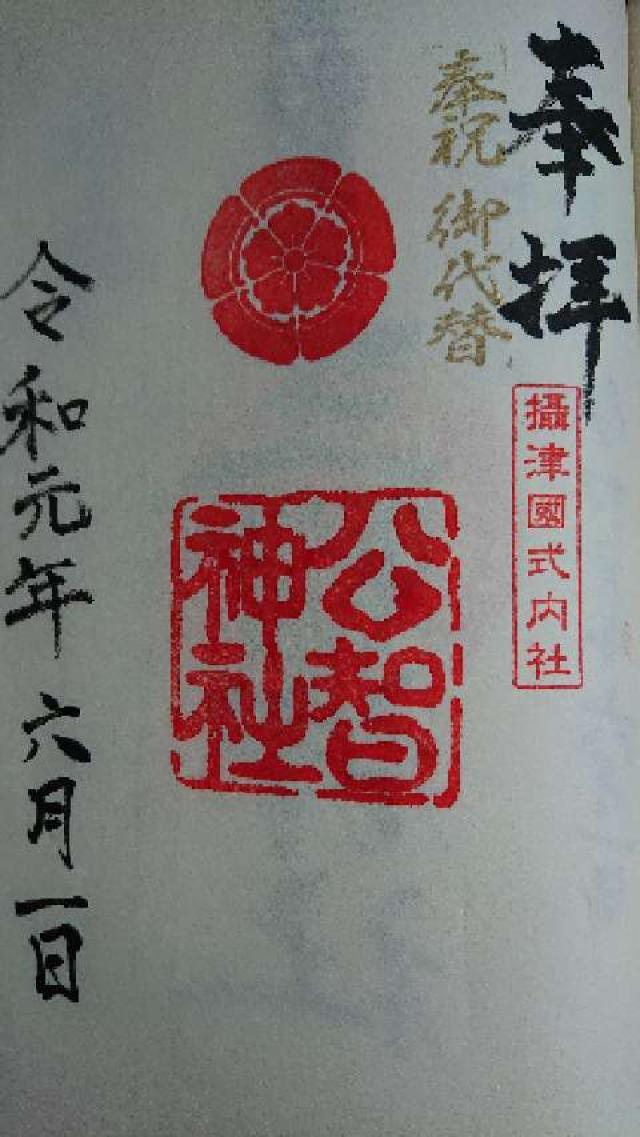 奉拝
奉祝 御代替
攝津國式内社
公智
神社
令和元年 六月一日